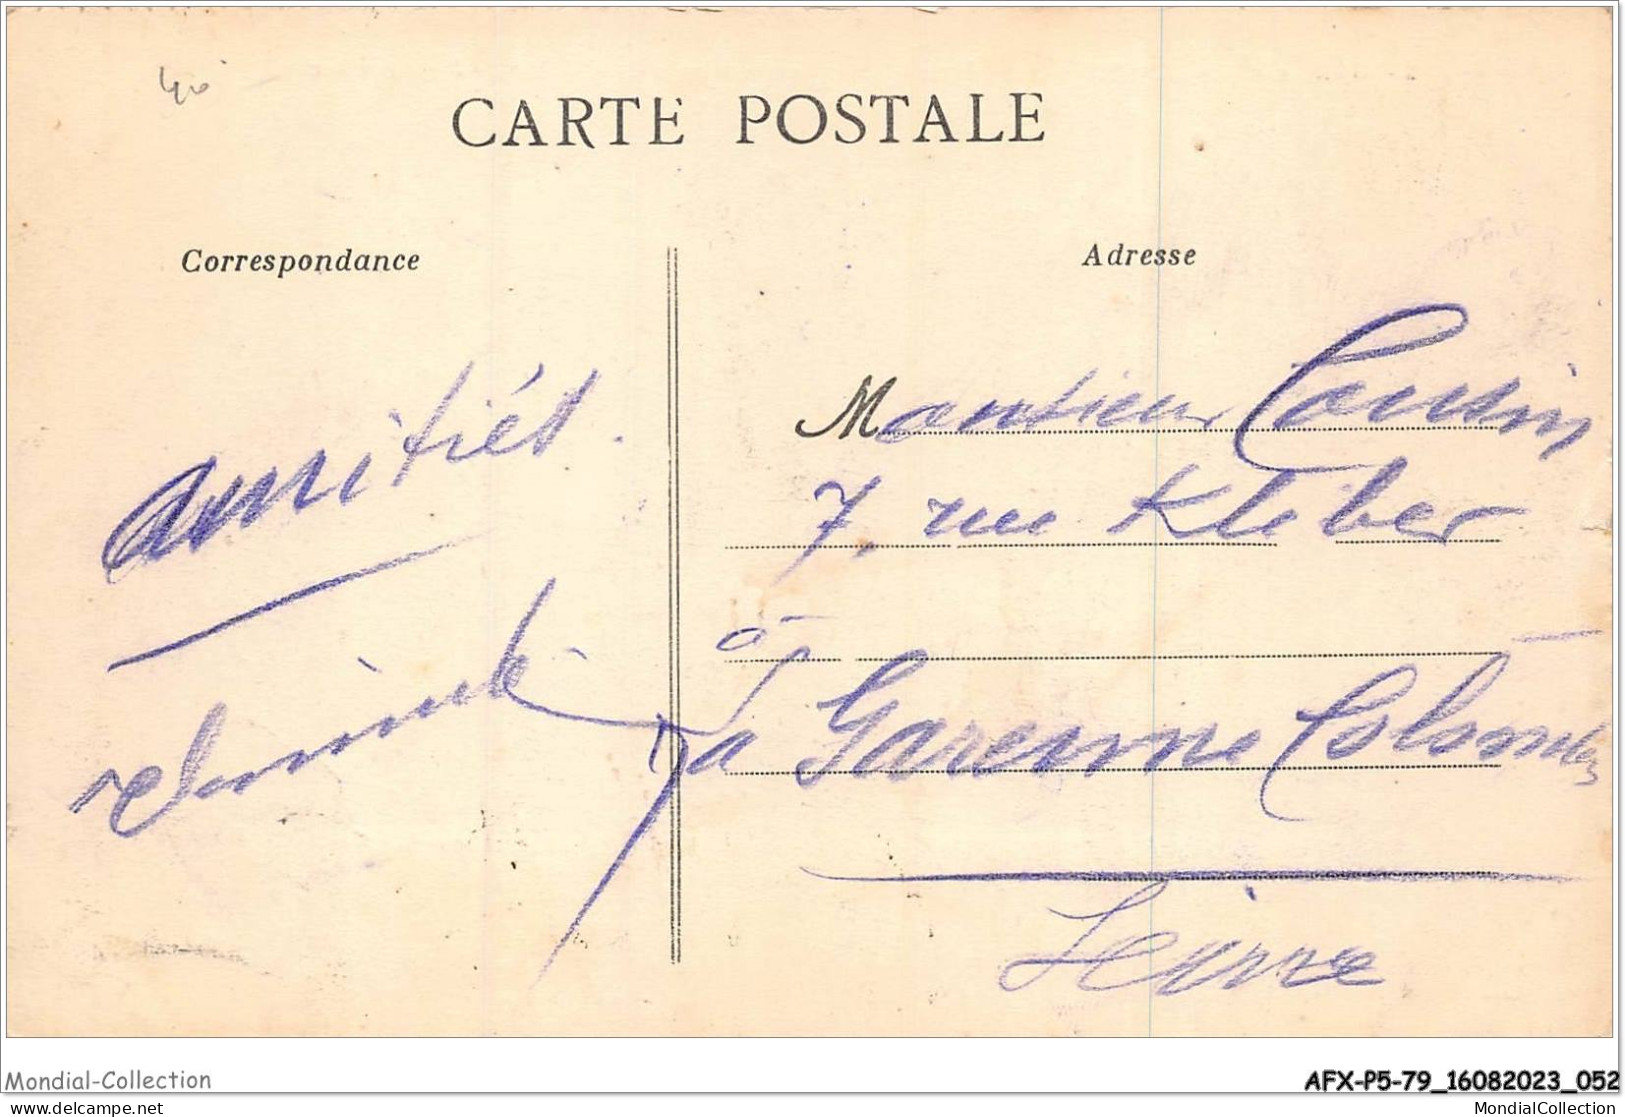 40
CARTE POSTALE
Correspondance
Adresse
amitiés
Monsieur Cousin
7, rue Kleber
à
La Garenne Colombes
Seine
Mondial-Collection
AFX-P5-79_16082023_052
www.delcampe.net
MondialCollection